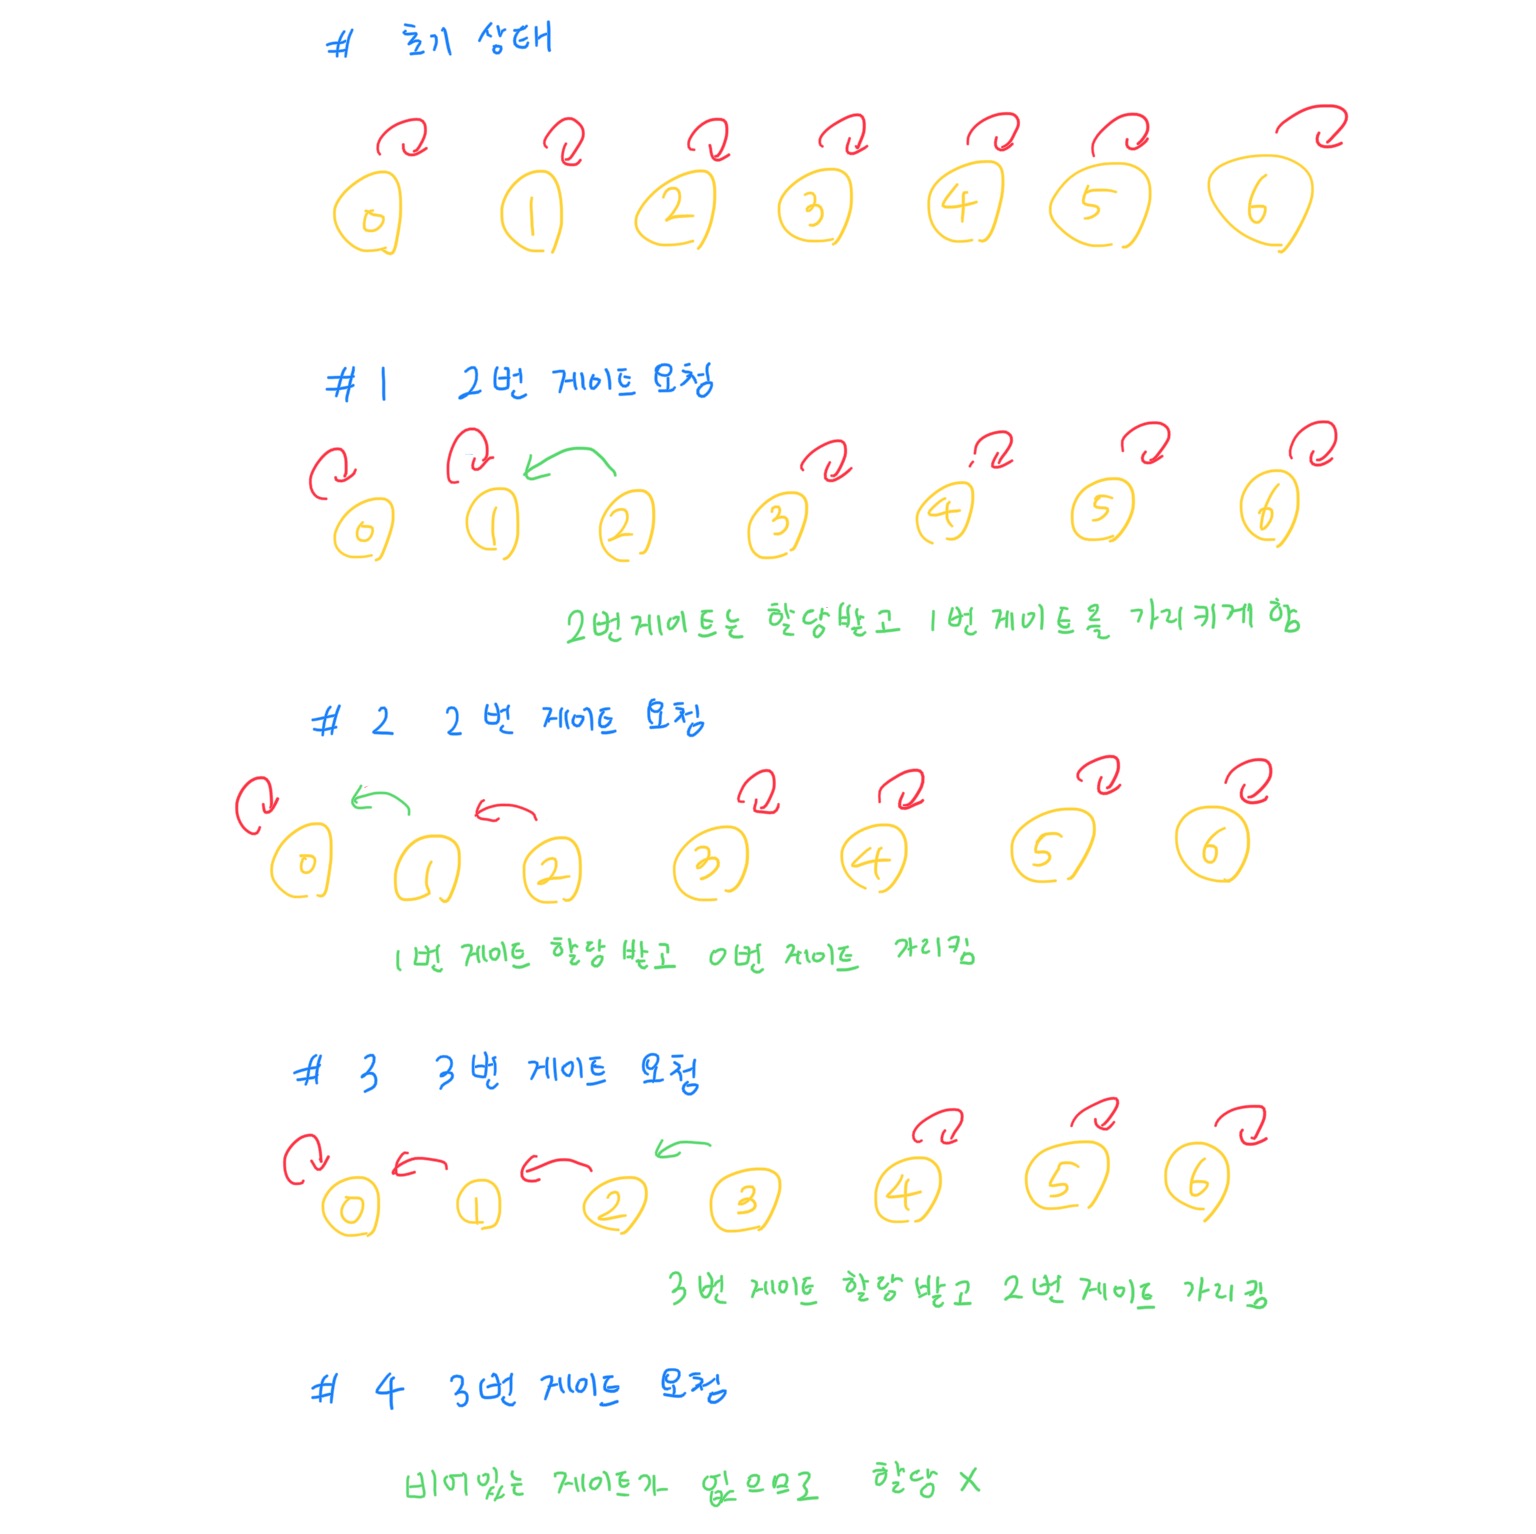 # 초기 상태
0 1 2 3 4 5 6
#1 2번 게이트 요청
0 1 2 3 4 5 6
2번게이트는 할당받고 1번 게이트를 가리키게 함
# 2 2번 게이트 요청
0 1 2 3 4 5 6
1번 게이트 할당 받고 0번 게이트 가리킴
# 3 3번 게이트 요청
0 1 2 3 4 5 6
3번 게이트 할당받고 2번게이트 가리킴
# 4 3번 게이트 요청
비어있는 게이트가 없으므로 할당 X